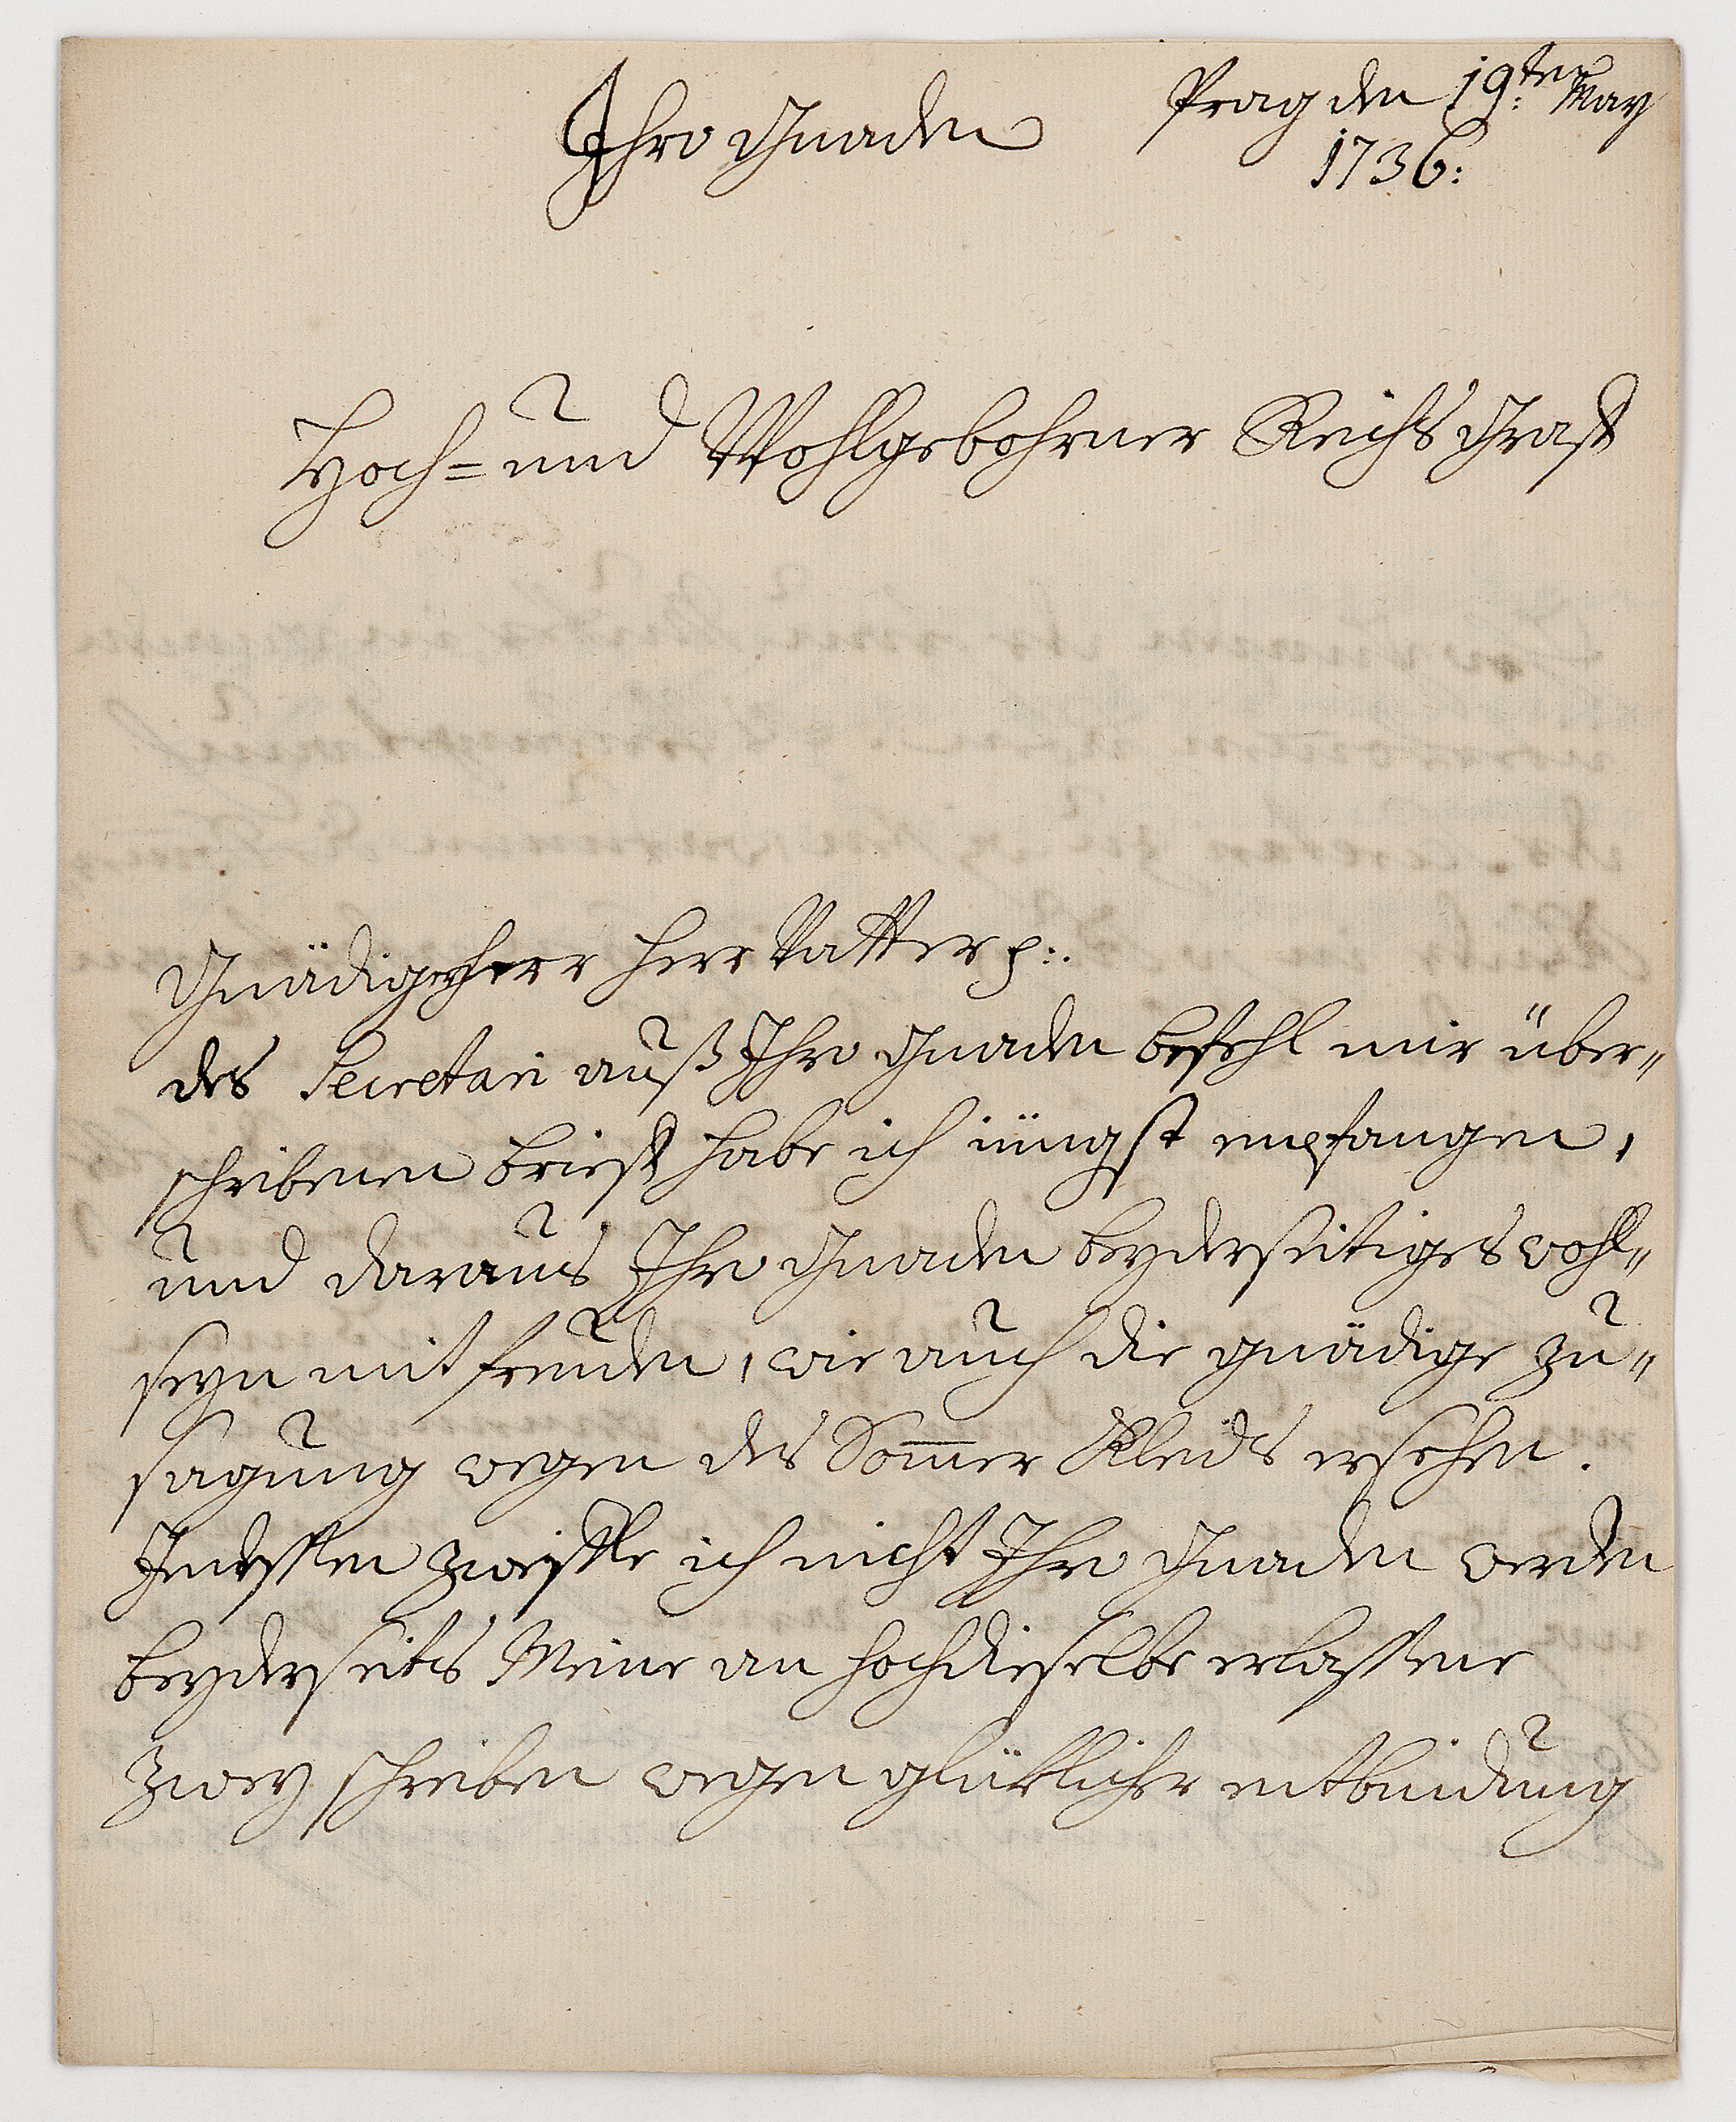 Prag den 19:ten May
1736:
Ihro Gnaden
Hoch= und Wohlgebohrner Reichs Graff
Gnädigerherr Herr Vatter p:.
des Secretari auß Ihro Gnaden befehl mir über„
schribenen brieff habe ich iüngst empfangen,
und daraus Ihro Gnaden beyderseitiges wohl„
seyn mit freuden, wie auch die gnädige zu„
sagung wegen des Som̅er Kleids ersehen.
Indessen zweiffle ich nicht Ihro Gnaden werden
beyderseits Meine an hochdieselbe erlassene
zwey schreiben wegen glüklicher entbindung